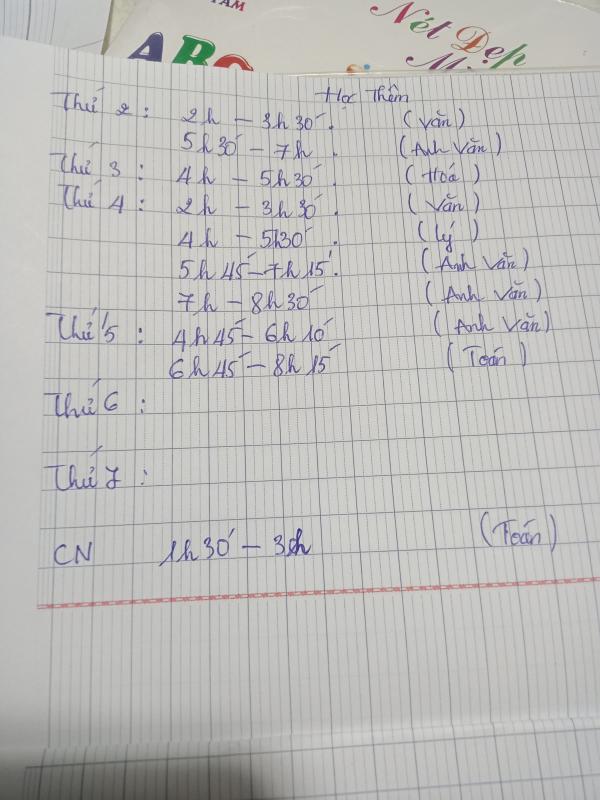 TÂM
Nét Đẹp
ABC
Học Thêm
Thứ 2 : 2h – 3h30´. (Văn)
5h30´ – 7h . (Anh Văn)
Thứ 3 : 4h – 5h30´. (Hoá)
Thứ 4 : 2h – 3h30´. (Văn)
4h – 5h30´. (Lý)
5h45´ – 7h15´. (Anh Văn)
7h – 8h30´ (Anh Văn)
Thứ 5 : 4h45´ – 6h10´ (Anh Văn)
6h45´ – 8h15´ (Toán)
Thứ 6 :
Thứ 7 :
CN 1h30´ – 3h (Toán)